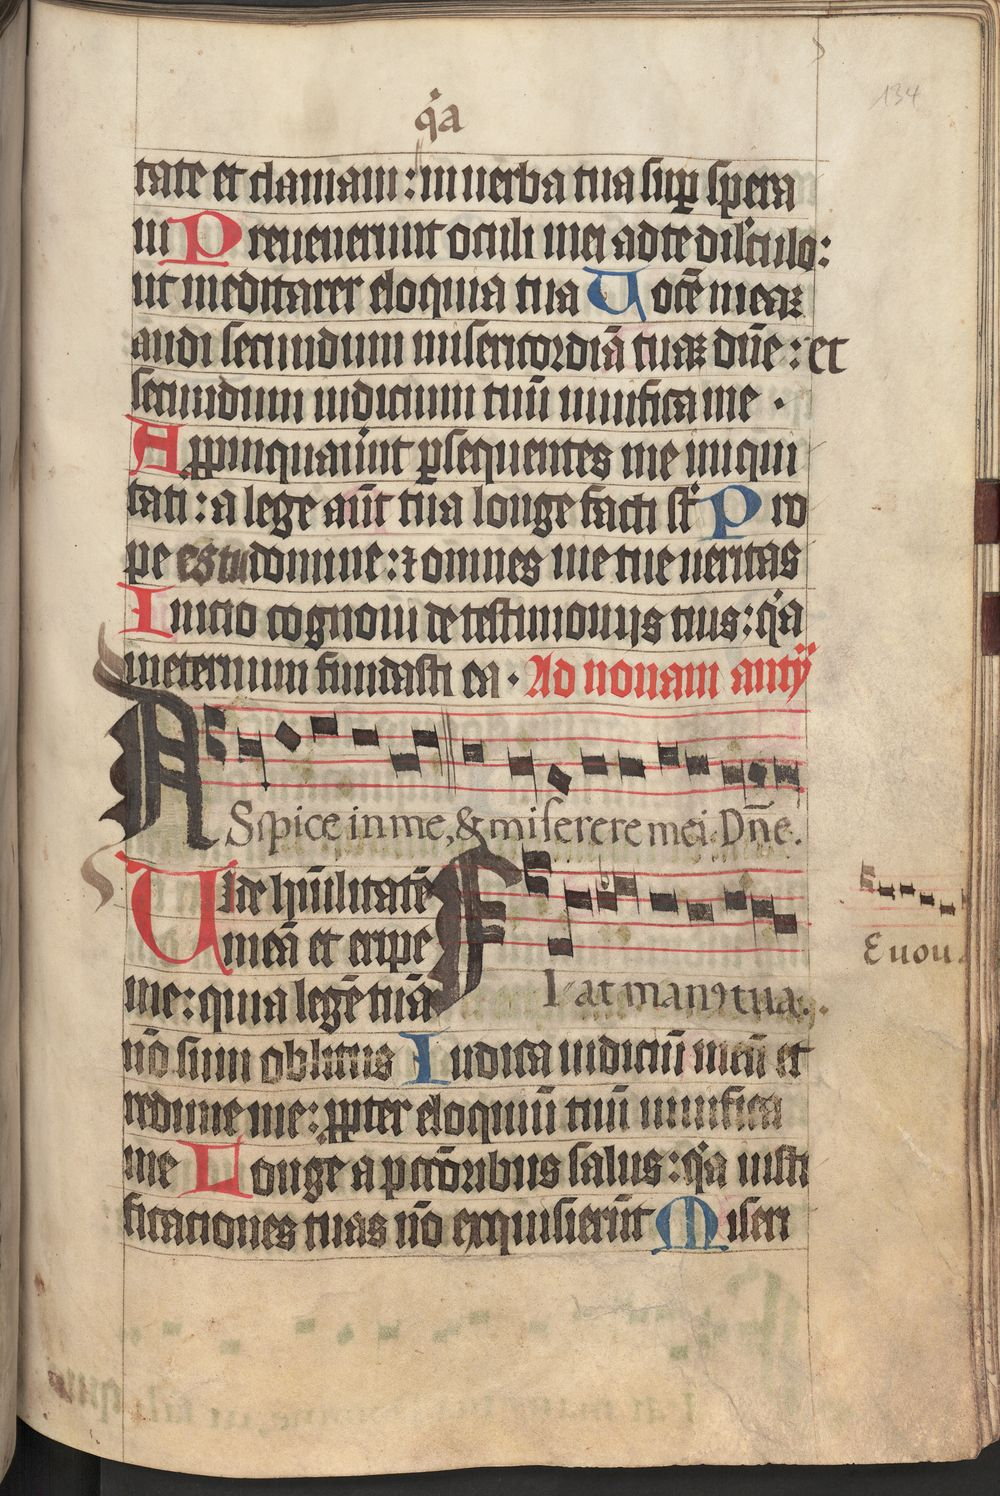 134
q̇a
tate et clamaui : in uerba tua sup̱ spera
ui Preuenerunt oculi mei ad te diluculo :
ut meditarer eloquia tua Uocē meaꝫ
audi secundum misericordiā tuaꝫ dn̄e : et
secundum iudicium tuū uiuifica me .
Appinquauūt ꝑsequentes me iniqui
tati : a lege aūt tua longe facti st̄ Pro
pe es tu domine : ⁊ omnes uie tue ueritas
Inicio cognoui de testimonijs tuis : q̇a
in eternum fundasti ea . Ad nonam antȳ
ASpice in me, & miserere mei Dn̄e.
Uide hūilitatē
meā et eripe
me : quia legē tuā
Fiat manꝰ tua.
Euou
nō sum oblitus Iudica iudiciū meū et
redime me : ꝓpter eloquiū tuū uiuifica
me Longe a pctōribus salus : q̇a iusti
ficationes tuas nō exquisierūt Miseri